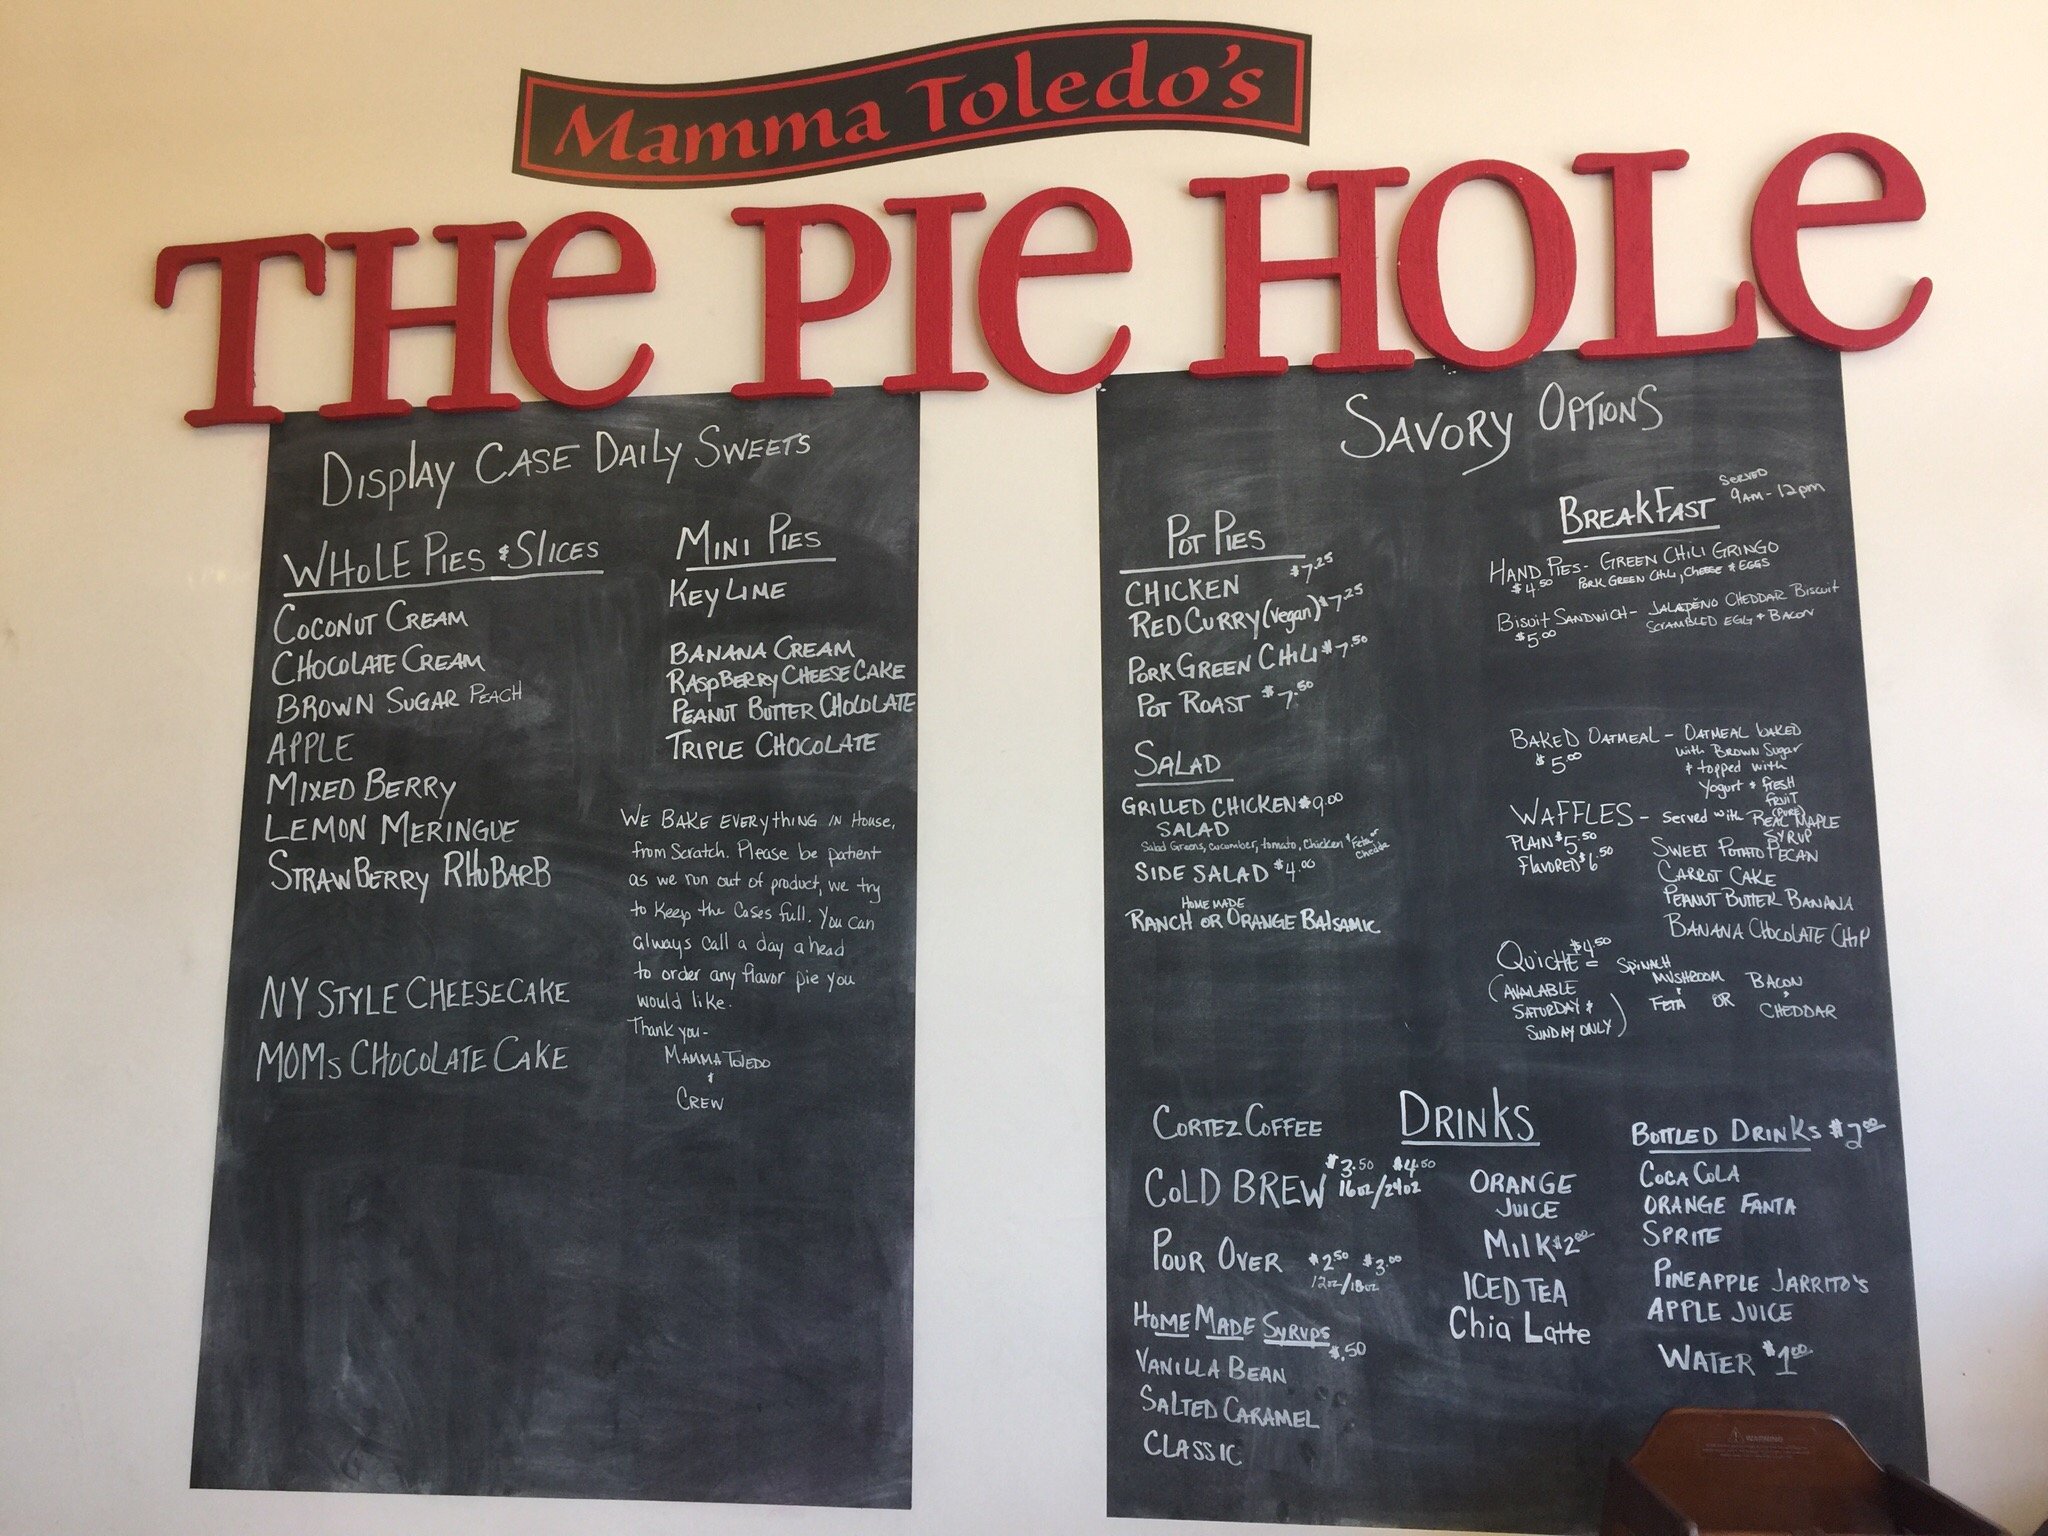 Mamma Toledo's
THe PIe HOLe
Display Case Daily Sweets
Whole Pies & Slices
Coconut Cream
Chocolate Cream
Brown Sugar Peach
Apple
Mixed Berry
Lemon Meringue
Strawberry Rhubarb
NY Style Cheesecake
Moms Chocolate Cake
Mini Pies
Key Lime
Banana Cream
Raspberry Cheese Cake
Peanut Butter Chocolate
Triple Chocolate
We Bake everything in House,
from Scratch. Please be patient
as we run out of product, we try
to keep the cases full. You can
always call a day ahead
to order any flavor pie you
would like.
Thank you-
Mamma Toledo
&
Crew
Savory Options
Pot Pies
Chicken $7.25
Red Curry (Vegan) $7.25
Pork Green Chili $7.50
Pot Roast $7.50
Salad
Grilled Chicken $9.00
Salad
Salad Greens, cucumber, tomato, Chicken & Feta or
Chedda
Side Salad $4.00
Home made
Ranch or Orange Balsamic
Breakfast Served
9am-12pm
Hand Pies- Green Chili Gringo
$4.50 Pork Green Chili, Cheese & Eggs
Bisuit Sandwich- Jalapeño Cheddar Biscuit
$5.00 Scrambled Egg & Bacon
Baked Oatmeal - Oatmeal baked
$5.00 with Brown Sugar
& topped with
Yogurt & fresh
fruit
Waffles - Served with Real (Pure) Maple
Syrup
Plain $5.50
Flavored $6.50
Sweet Potato Pecan
Carrot Cake
Peanut Butter Banana
Banana Chocolate Chip
Quiche $4.50 - Spinach
Mushroom
&
Feta or Bacon
&
Cheddar
(Available
Saturday &
Sunday only)
Drinks
Cortez Coffee
Cold Brew $3.50 $4.50
16oz/24oz
Pour Over $2.50 $3.00
12oz/16oz
Home Made Syrups
$.50
Vanilla Bean
Salted Caramel
Classic
Orange
Juice
Milk $2.00
Iced Tea
Chia Latte
Bottled Drinks $2.00
Coca Cola
Orange Fanta
Sprite
Pineapple Jarrito's
Apple Juice
Water $1.00
WARNING